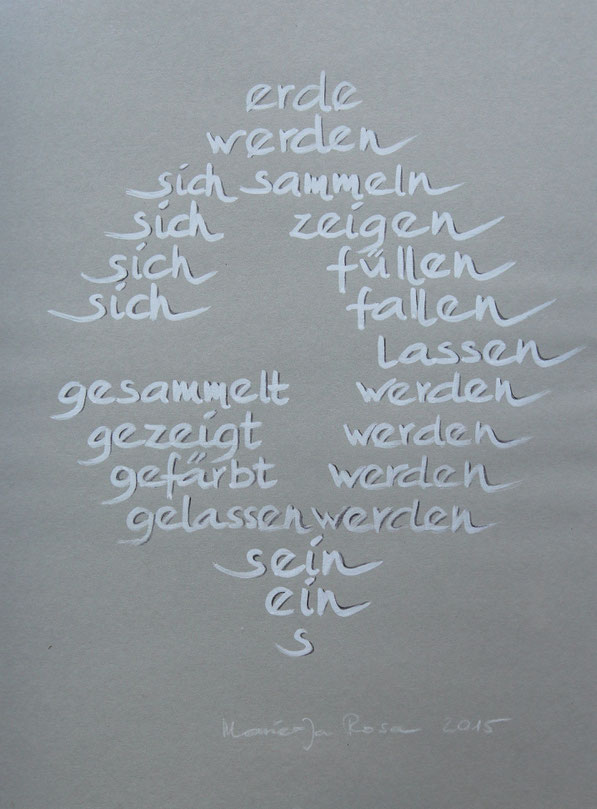 erde
werden
sich sammeln
sich zeigen
sich füllen
sich fallen
lassen
gesammelt werden
gezeigt werden
gefärbt werden
gelassen werden
sein
ein
s
Rosa 2015